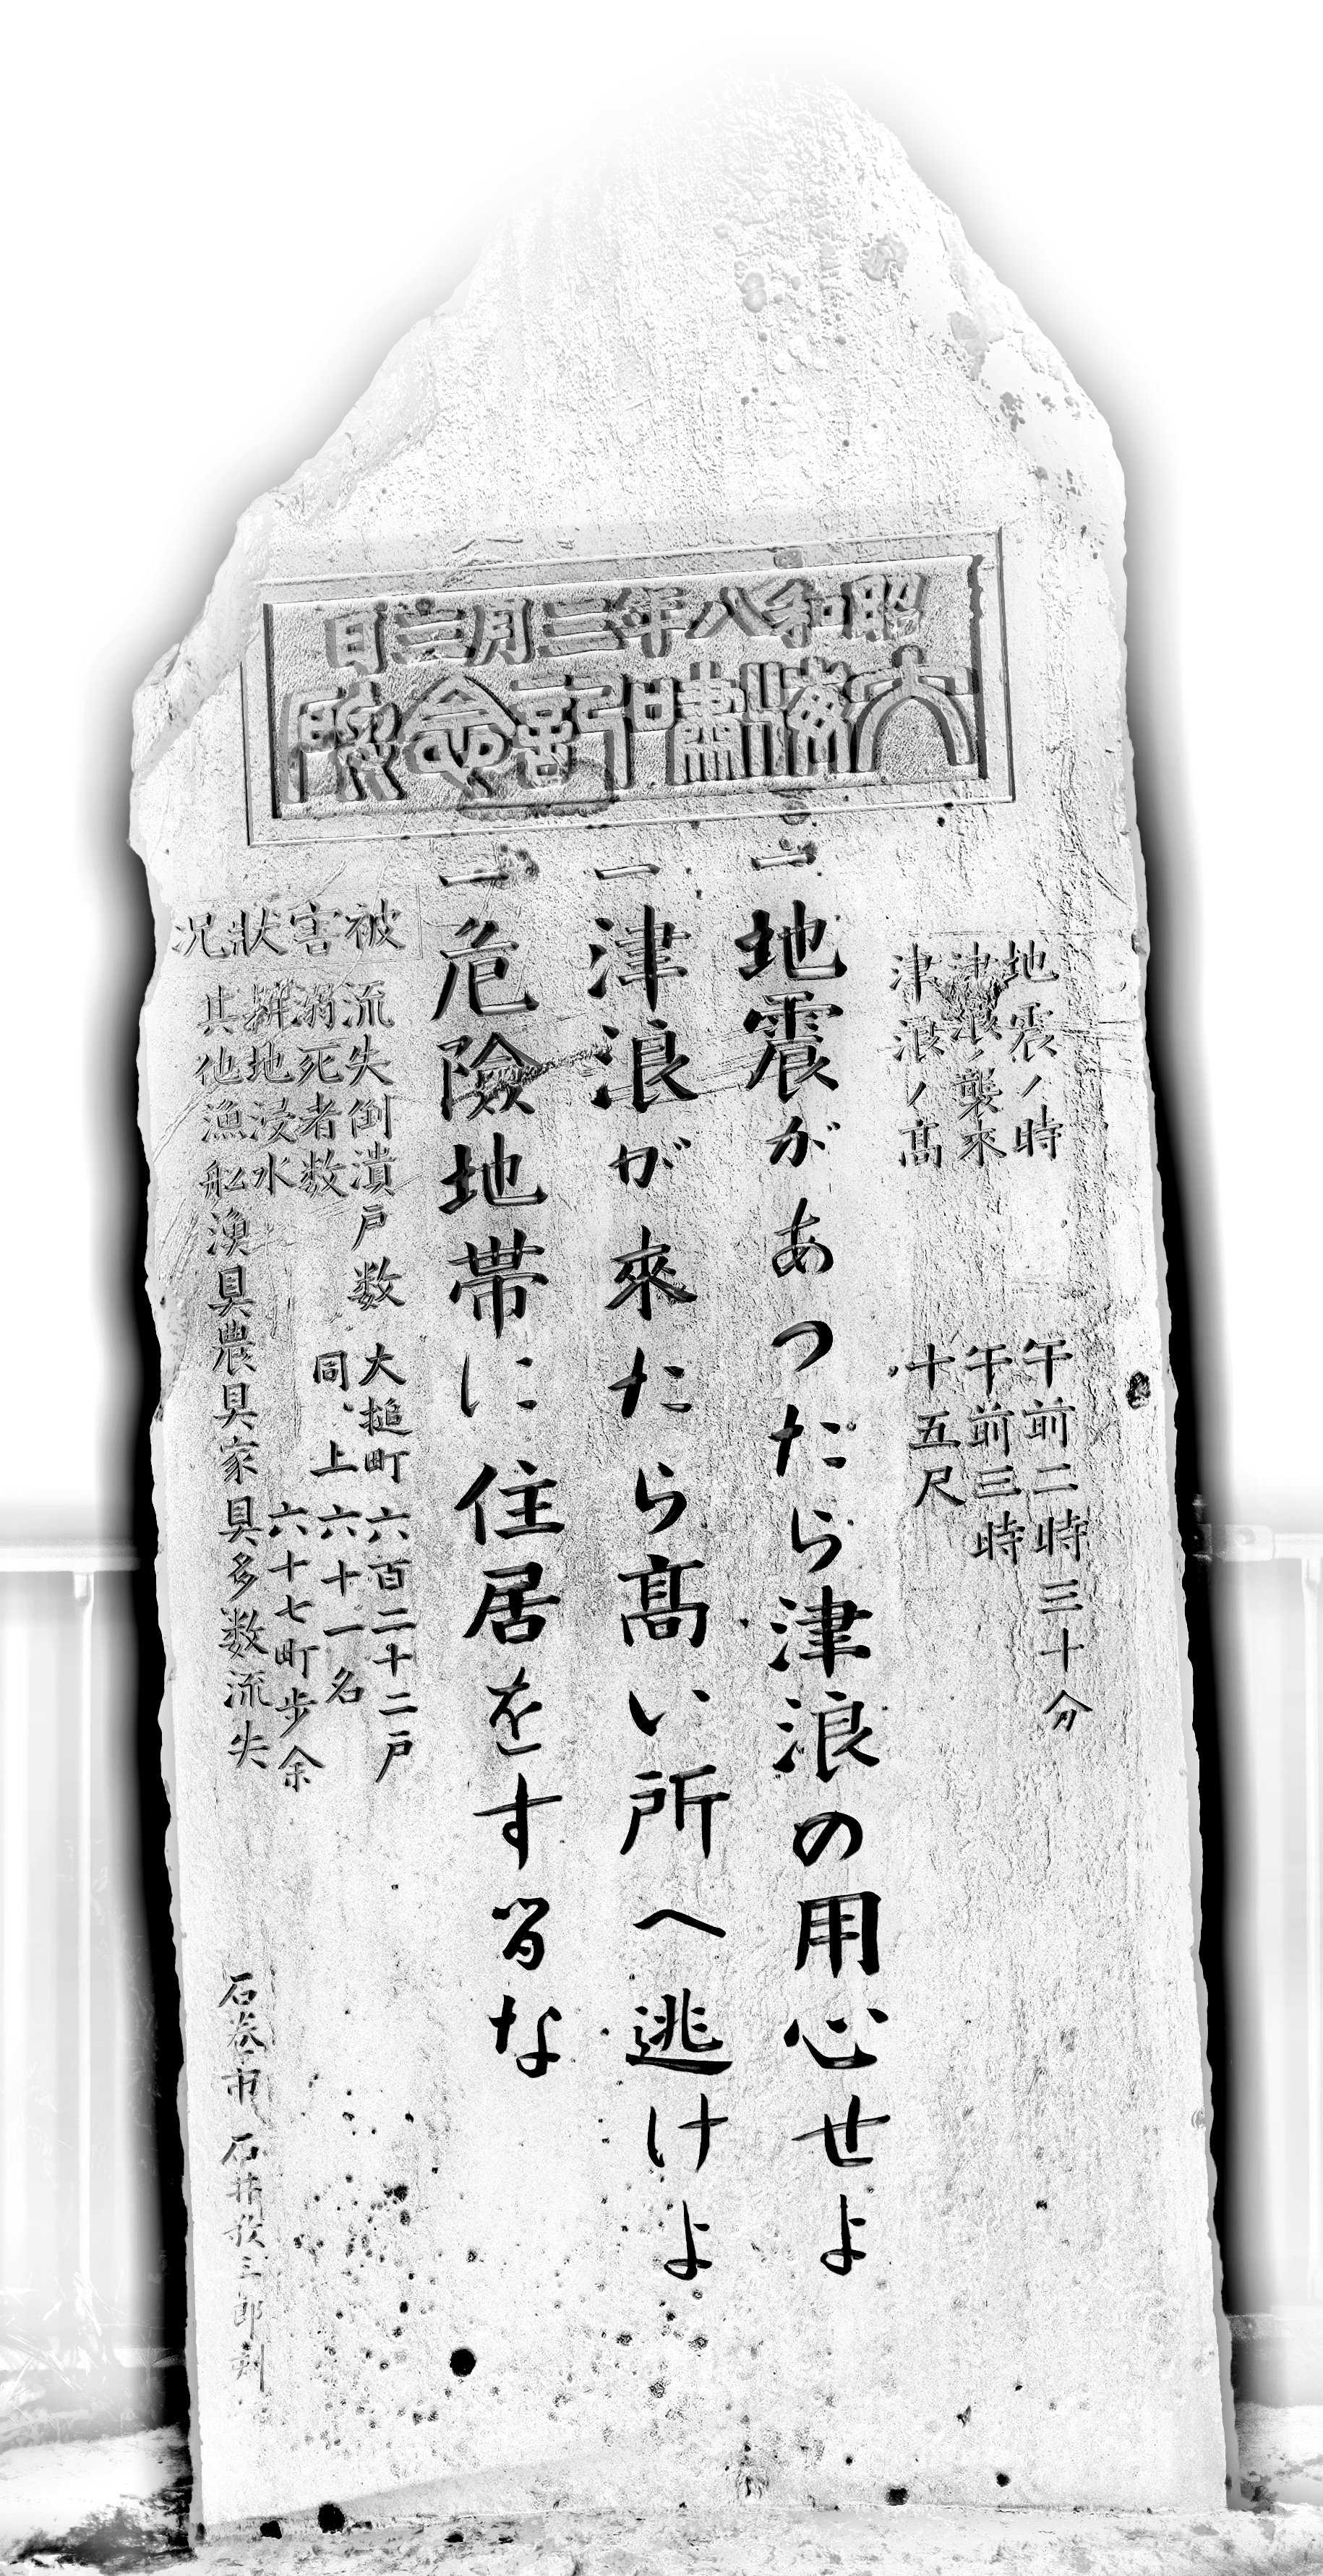 昭和八年三月三日
大海嘯記念碑
地震ノ時 午前二時三十分
津浪ノ襲來 午前三時
津浪ノ髙 十五尺
一 地震があつたら津浪の用心せよ
一 津浪が來たら髙い所へ逃けよ
一 危險地帯に住居をするな
被害狀況
流失倒潰戸数 大槌町 六百二十二戸
溺死者数 同上 六十一名
耕地浸水 六十七町歩余
其他漁船漁具農具家具多数流失
石巻市 石井 三郎刻